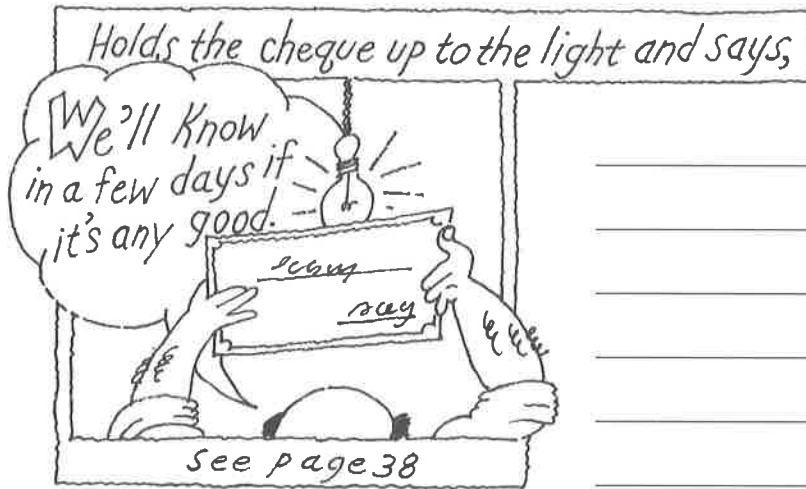 Holds the cheque up to the light and says,
We'll Know
in a few days if
it's any good.
see page 38